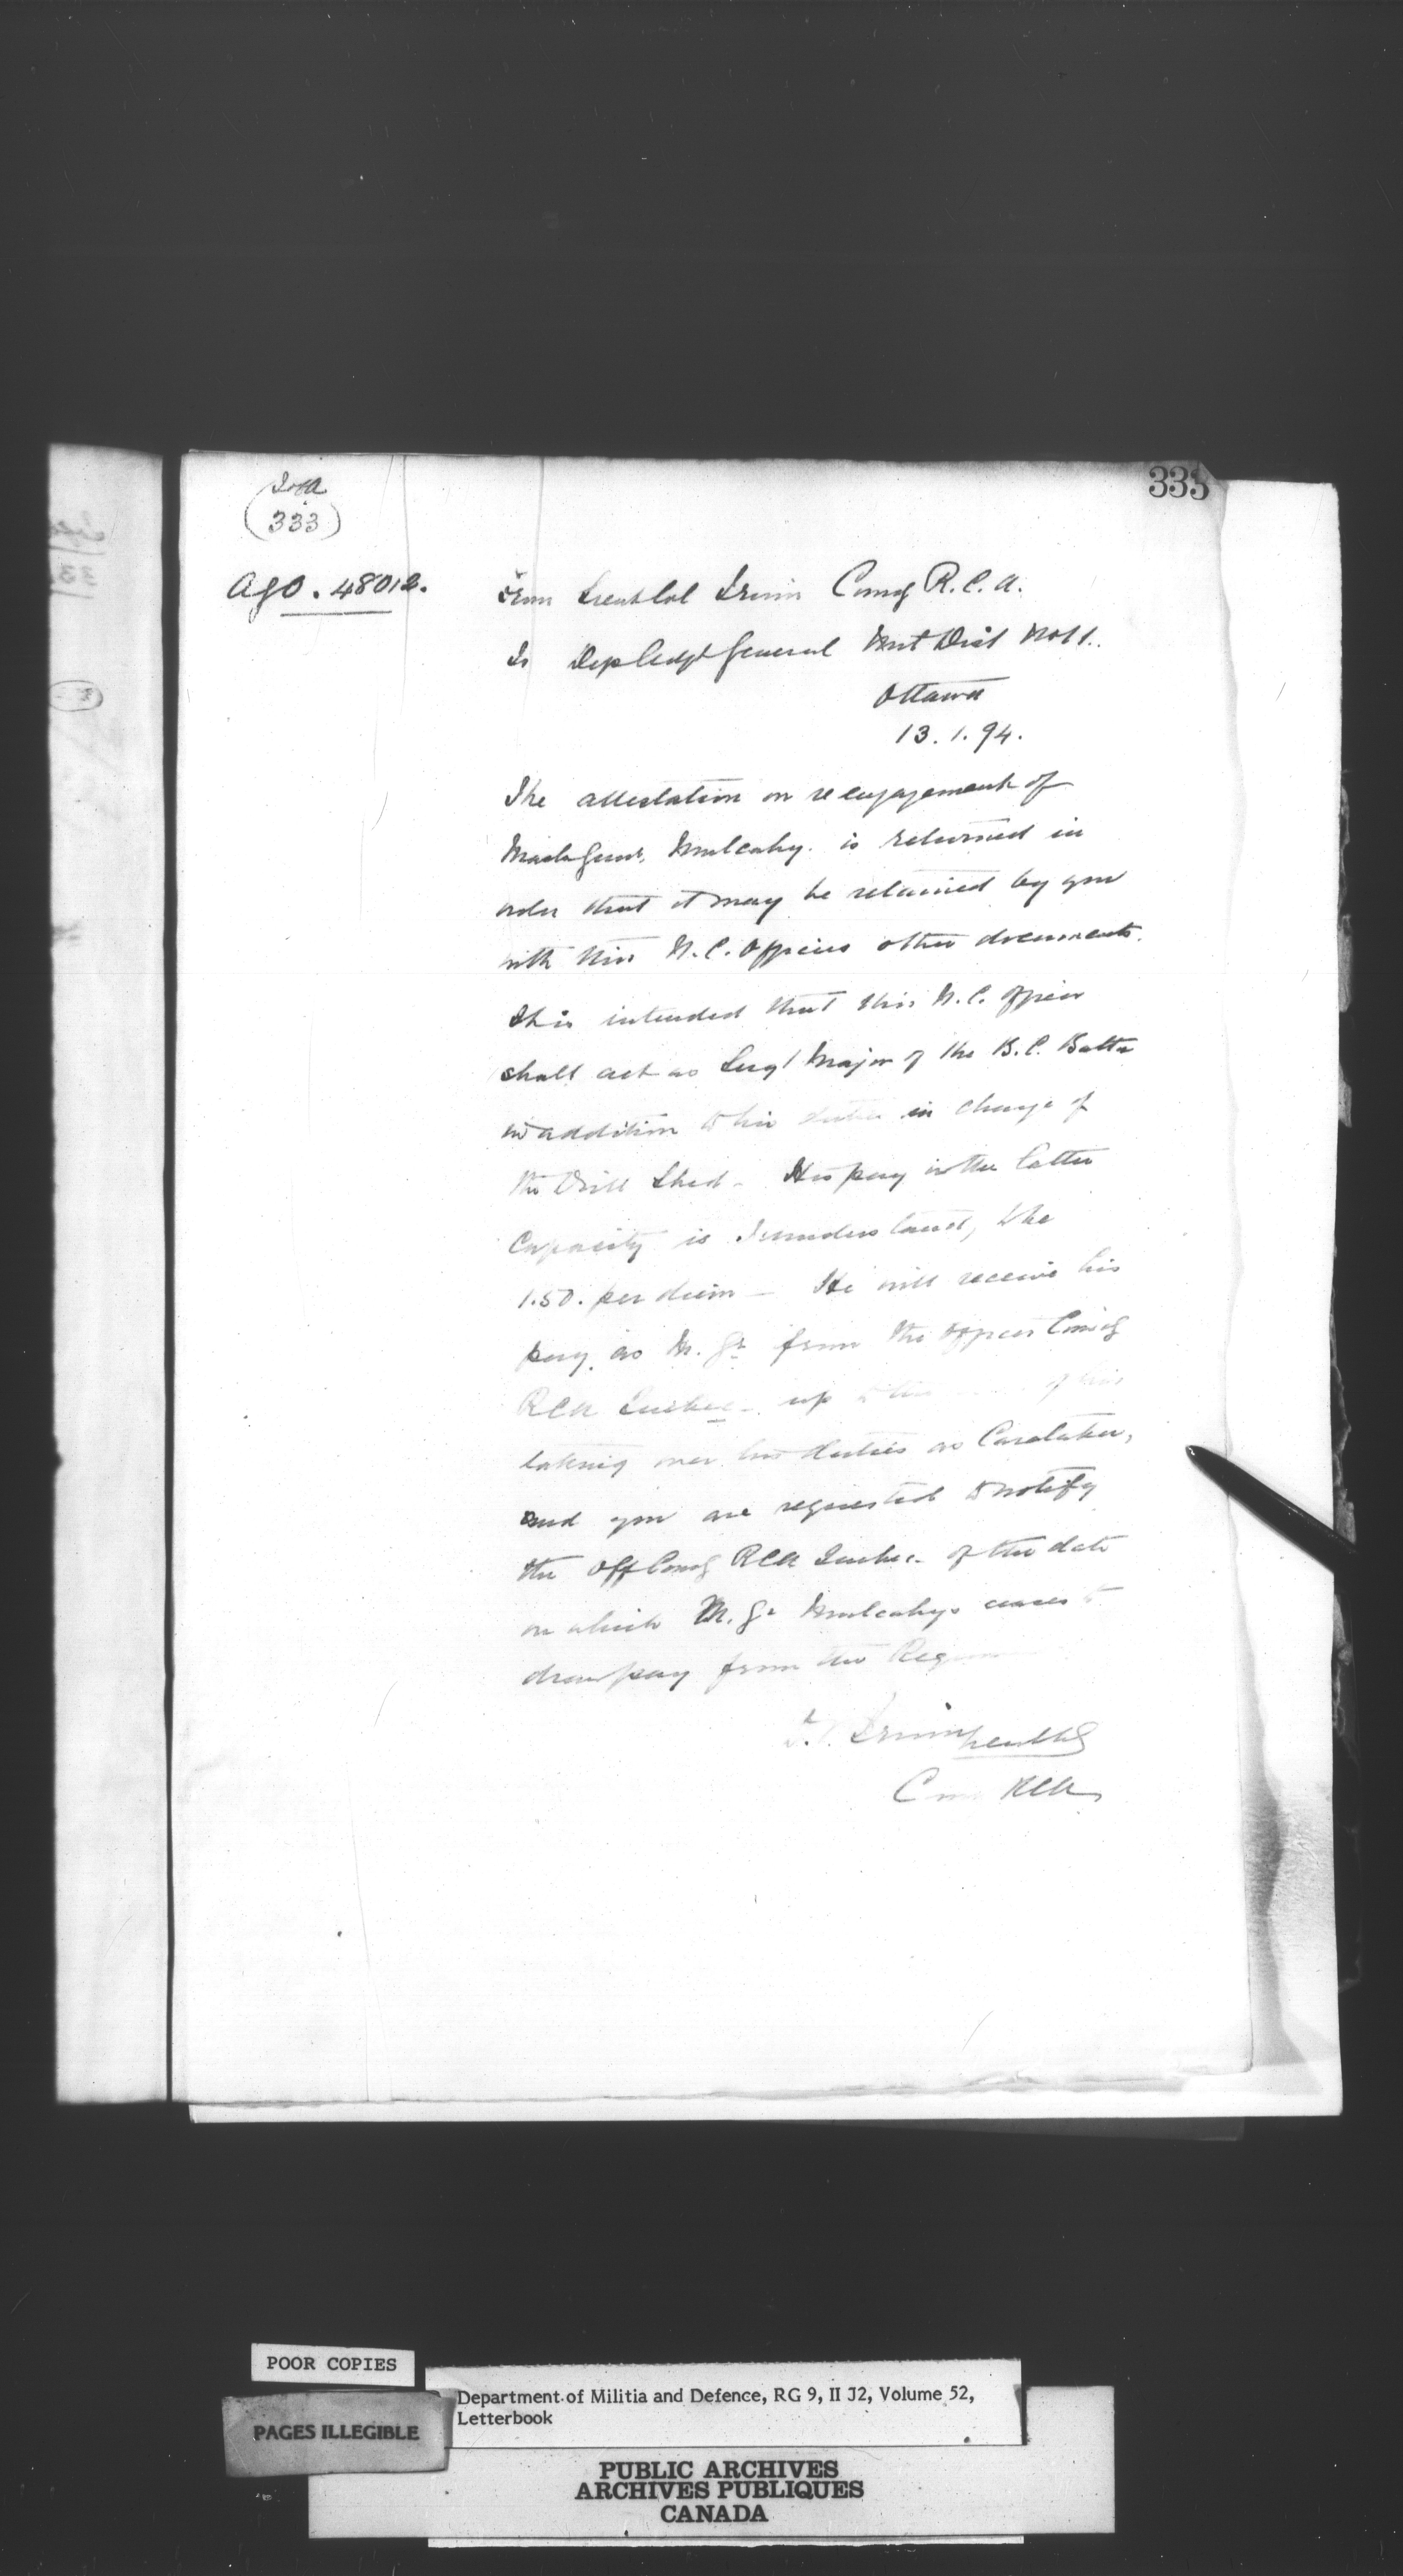 333
(333)
AGO. 48012.
From Lieut Col Irwin Comdg R.C.A.
To Dep Adjt General Mil Dist No 11.
Ottawa
13.1.94.
The attestation on reengagement of
Master Gunr. Mulcahy. is returned in
order that it may be retained by you
with this N.C. Officers other documents.
It is intended that this N.C. Officer
shall act as Sergt Major of the B.C. Battn
in addition to his duties in charge of
the Drill Shed - His pay in the latter
Capacity is I understand, to be
1.50. per diem - He will receive his
pay as M. Gr from the Officer Comdg
RCA Quebec - up to the of his
taking over his duties as Caretaker,
and you are requested to notify
the Off Comdg RCA Quebec of the date
on which M. Gr Mulcahy ceases to
draw pay from the
Irwin Lieut Col
RCA
POOR COPIES
PAGES ILLEGIBLE
Department of Militia and Defence, RG 9, II J2, Volume 52,
Letterbook
PUBLIC ARCHIVES
ARCHIVES PUBLIQUES
CANADA